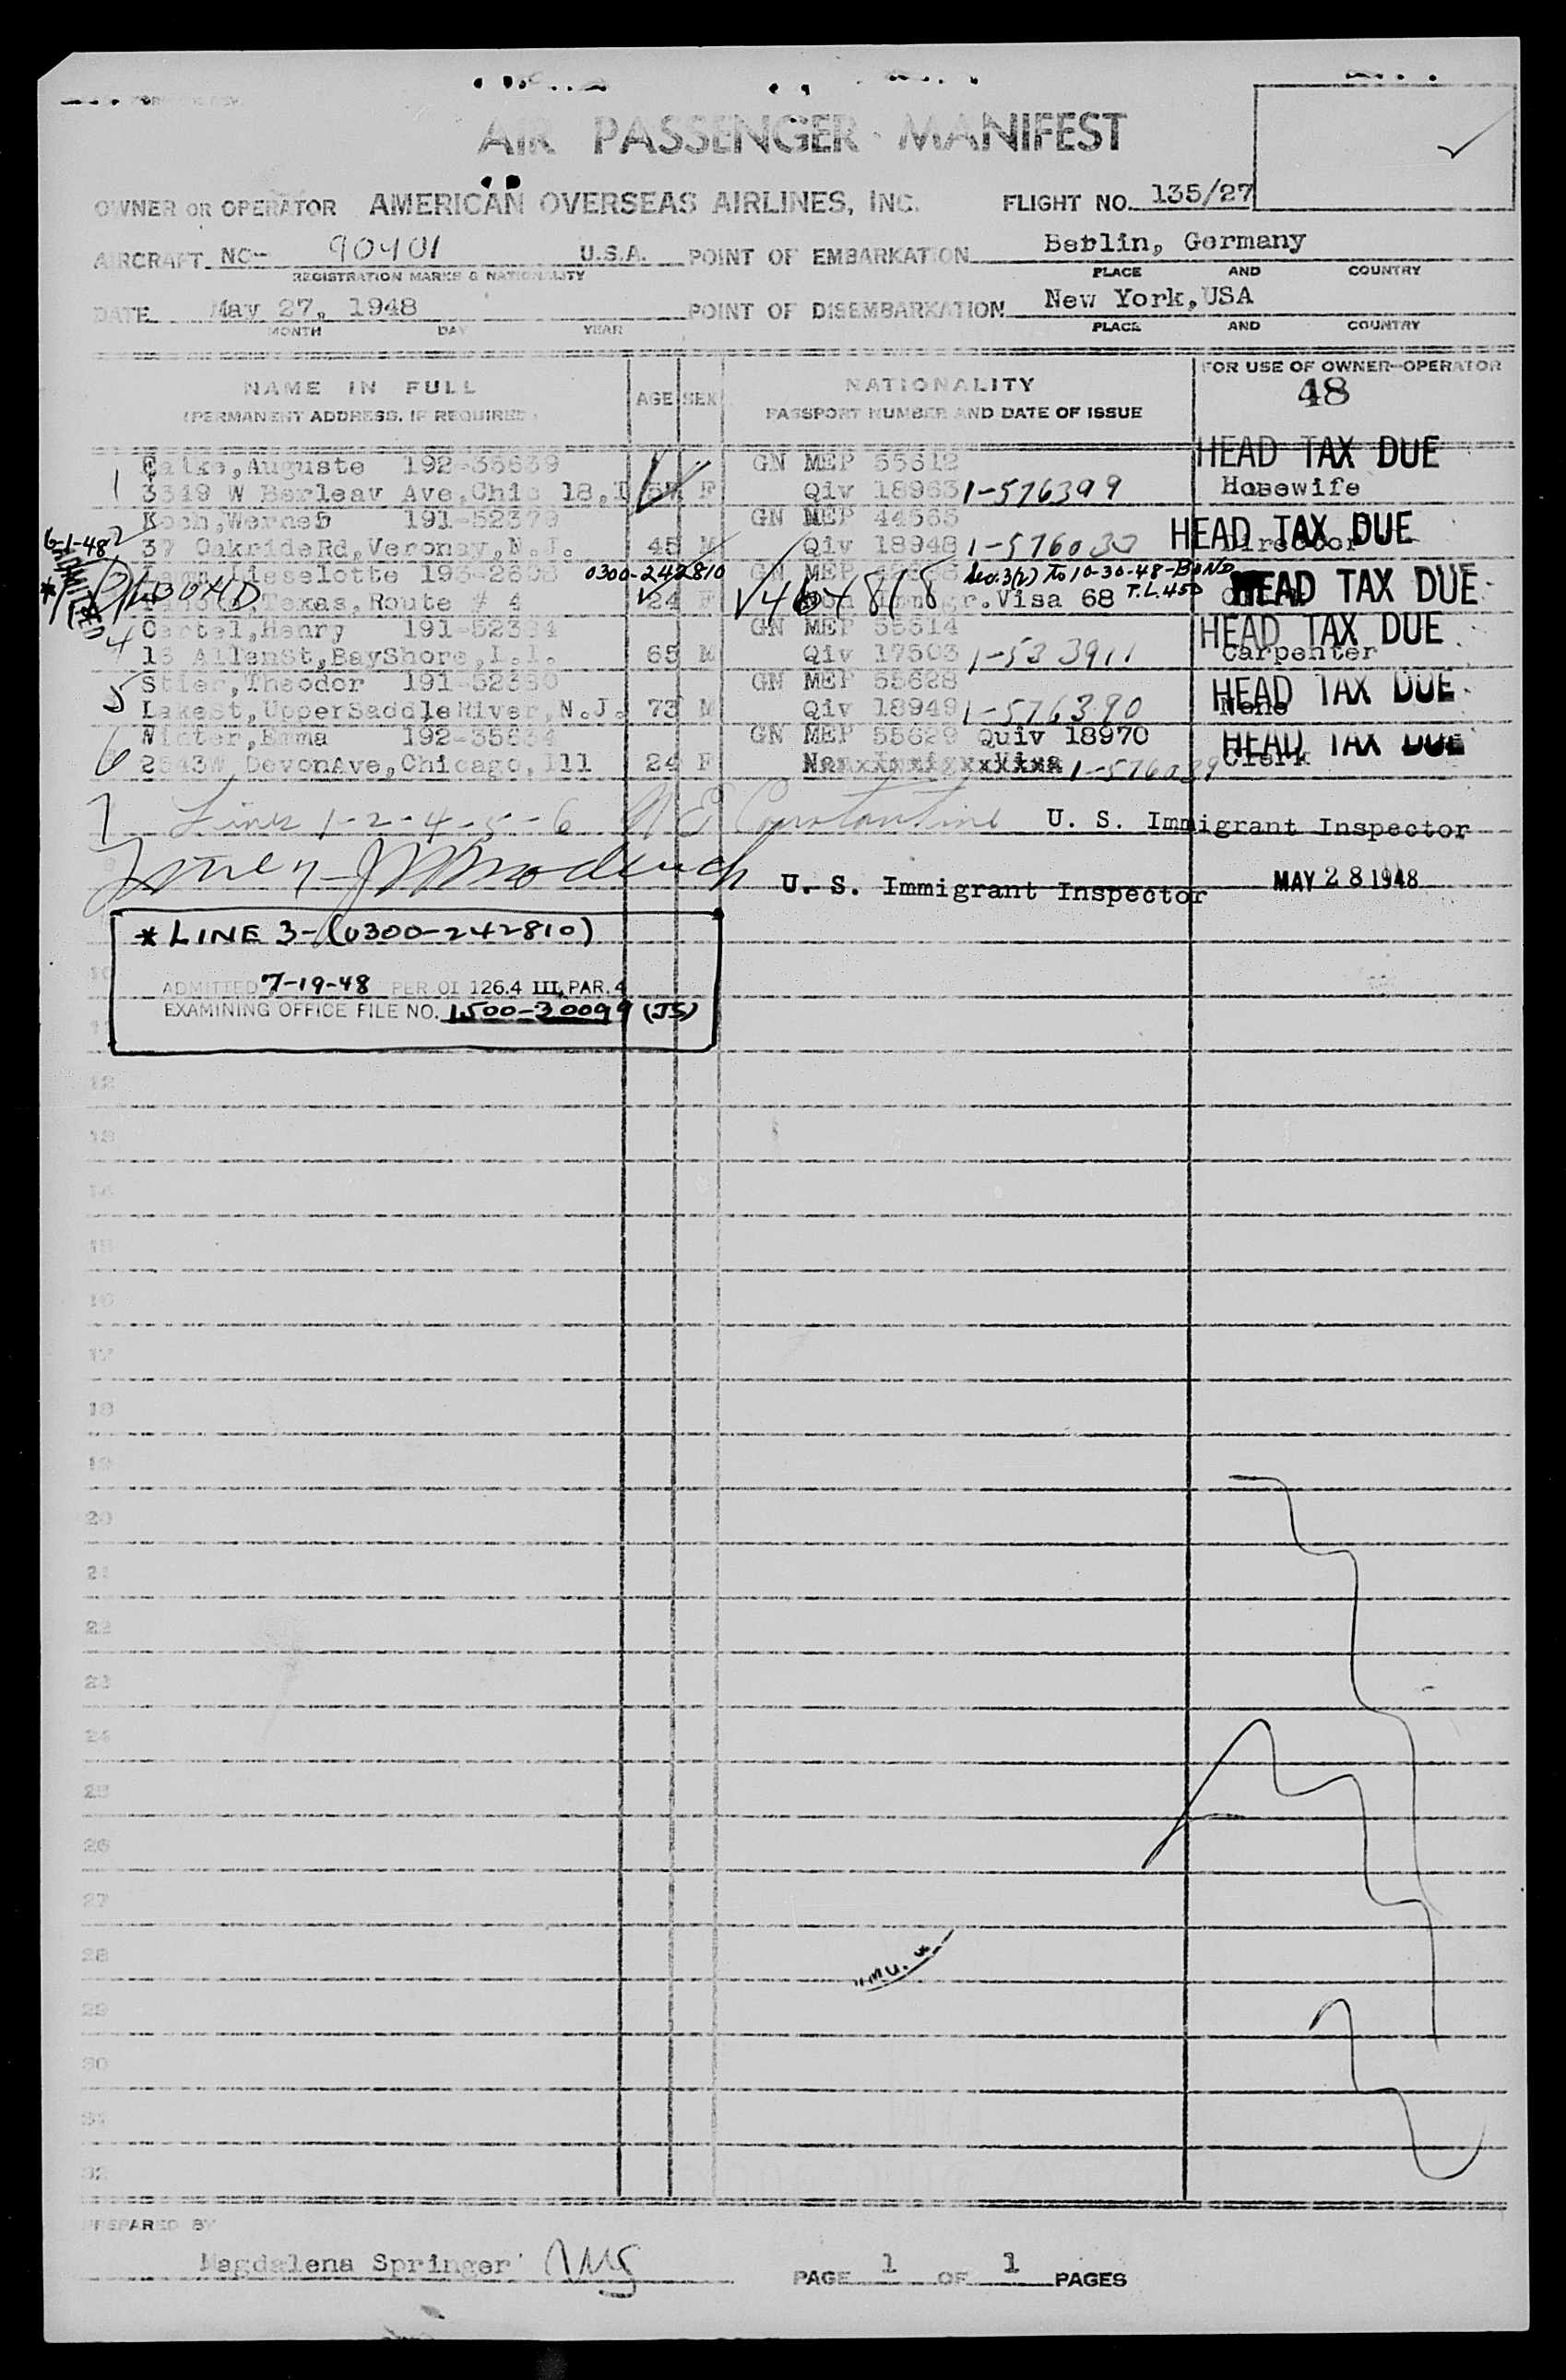 AIR PASSENGER MANIFEST
OWNER OR OPERATOR AMERICAN OVERSEAS AIRLINES, INC. FLIGHT NO. 135/27
AIRCRAFT NC- 90401 U.S.A. POINT OF EMBARKATION Beblin, Germany
REGISTRATION MARKS & NATIONALITY PLACE AND COUNTRY
DATE May 27, 1948 POINT OF DISEMBARKATION New York,USA
MONTH DAY YEAR PLACE AND COUNTRY
NAME IN FULL AGE SEX NATIONALITY FOR USE OF OWNER-OPERATOR
(PERMANENT ADDRESS, IF REQUIRED) PASSPORT NUMBER AND DATE OF ISSUE 48
Auguste 192-35639 GN MEP 55612 HEAD TAX DUE
1 3319 W Ave,Chic 18, F Qiv 18963 1-576399 Hosewife
Koch, 191-52379 GN MEP 44565 HEAD TAX DUE
6-1-48 2 37 OakrideRd,Veronay,N.J. 45 M Qiv 18948 Director
Lieselotte 0300-242810 GN MEP Sec.3(2) To 10-30-48-BOND HEAD TAX DUE
* ADMITTED Texas, Route # 4 24 F V464818 r.Visa 68 T.L. 450
4 Henry 191-52384 GN MEP 55614 HEAD TAX DUE
AllenSt,BayShore,L.I. 65 M Qiv 17503 1-533911 Carpenter
5 Stier,Theodor 191-52380 GN MEP 55628 HEAD TAX DUE
LakeSt,UpperSaddleRiver,N.J. 73 M Qiv 18949 1-576390 None
Winter,Emma 192-35634 GN MEP 55629 Quiv 18970 HEAD TAX DUE
6 2543W DevonAve,Chicago,Ill 24 F 1-576039 Clerk
7 Lines 1-2-4-5-6 N E Constantine U. S. Immigrant Inspector
U. S. Immigrant Inspector MAY 28 1948
* LINE 3-(0300-242810)
10
ADMITTED 7-19-48 PER OI 126.4 III, PAR. 4
EXAMINING OFFICE FILE NO. 1500-30099 (JS)
12
13
14
15
16
17
18
19
20
21
22
23
24
25
26
27
28
29
30
31
32
PREPARED BY
Magdalena Springer
PAGE 1 OF 1 PAGES